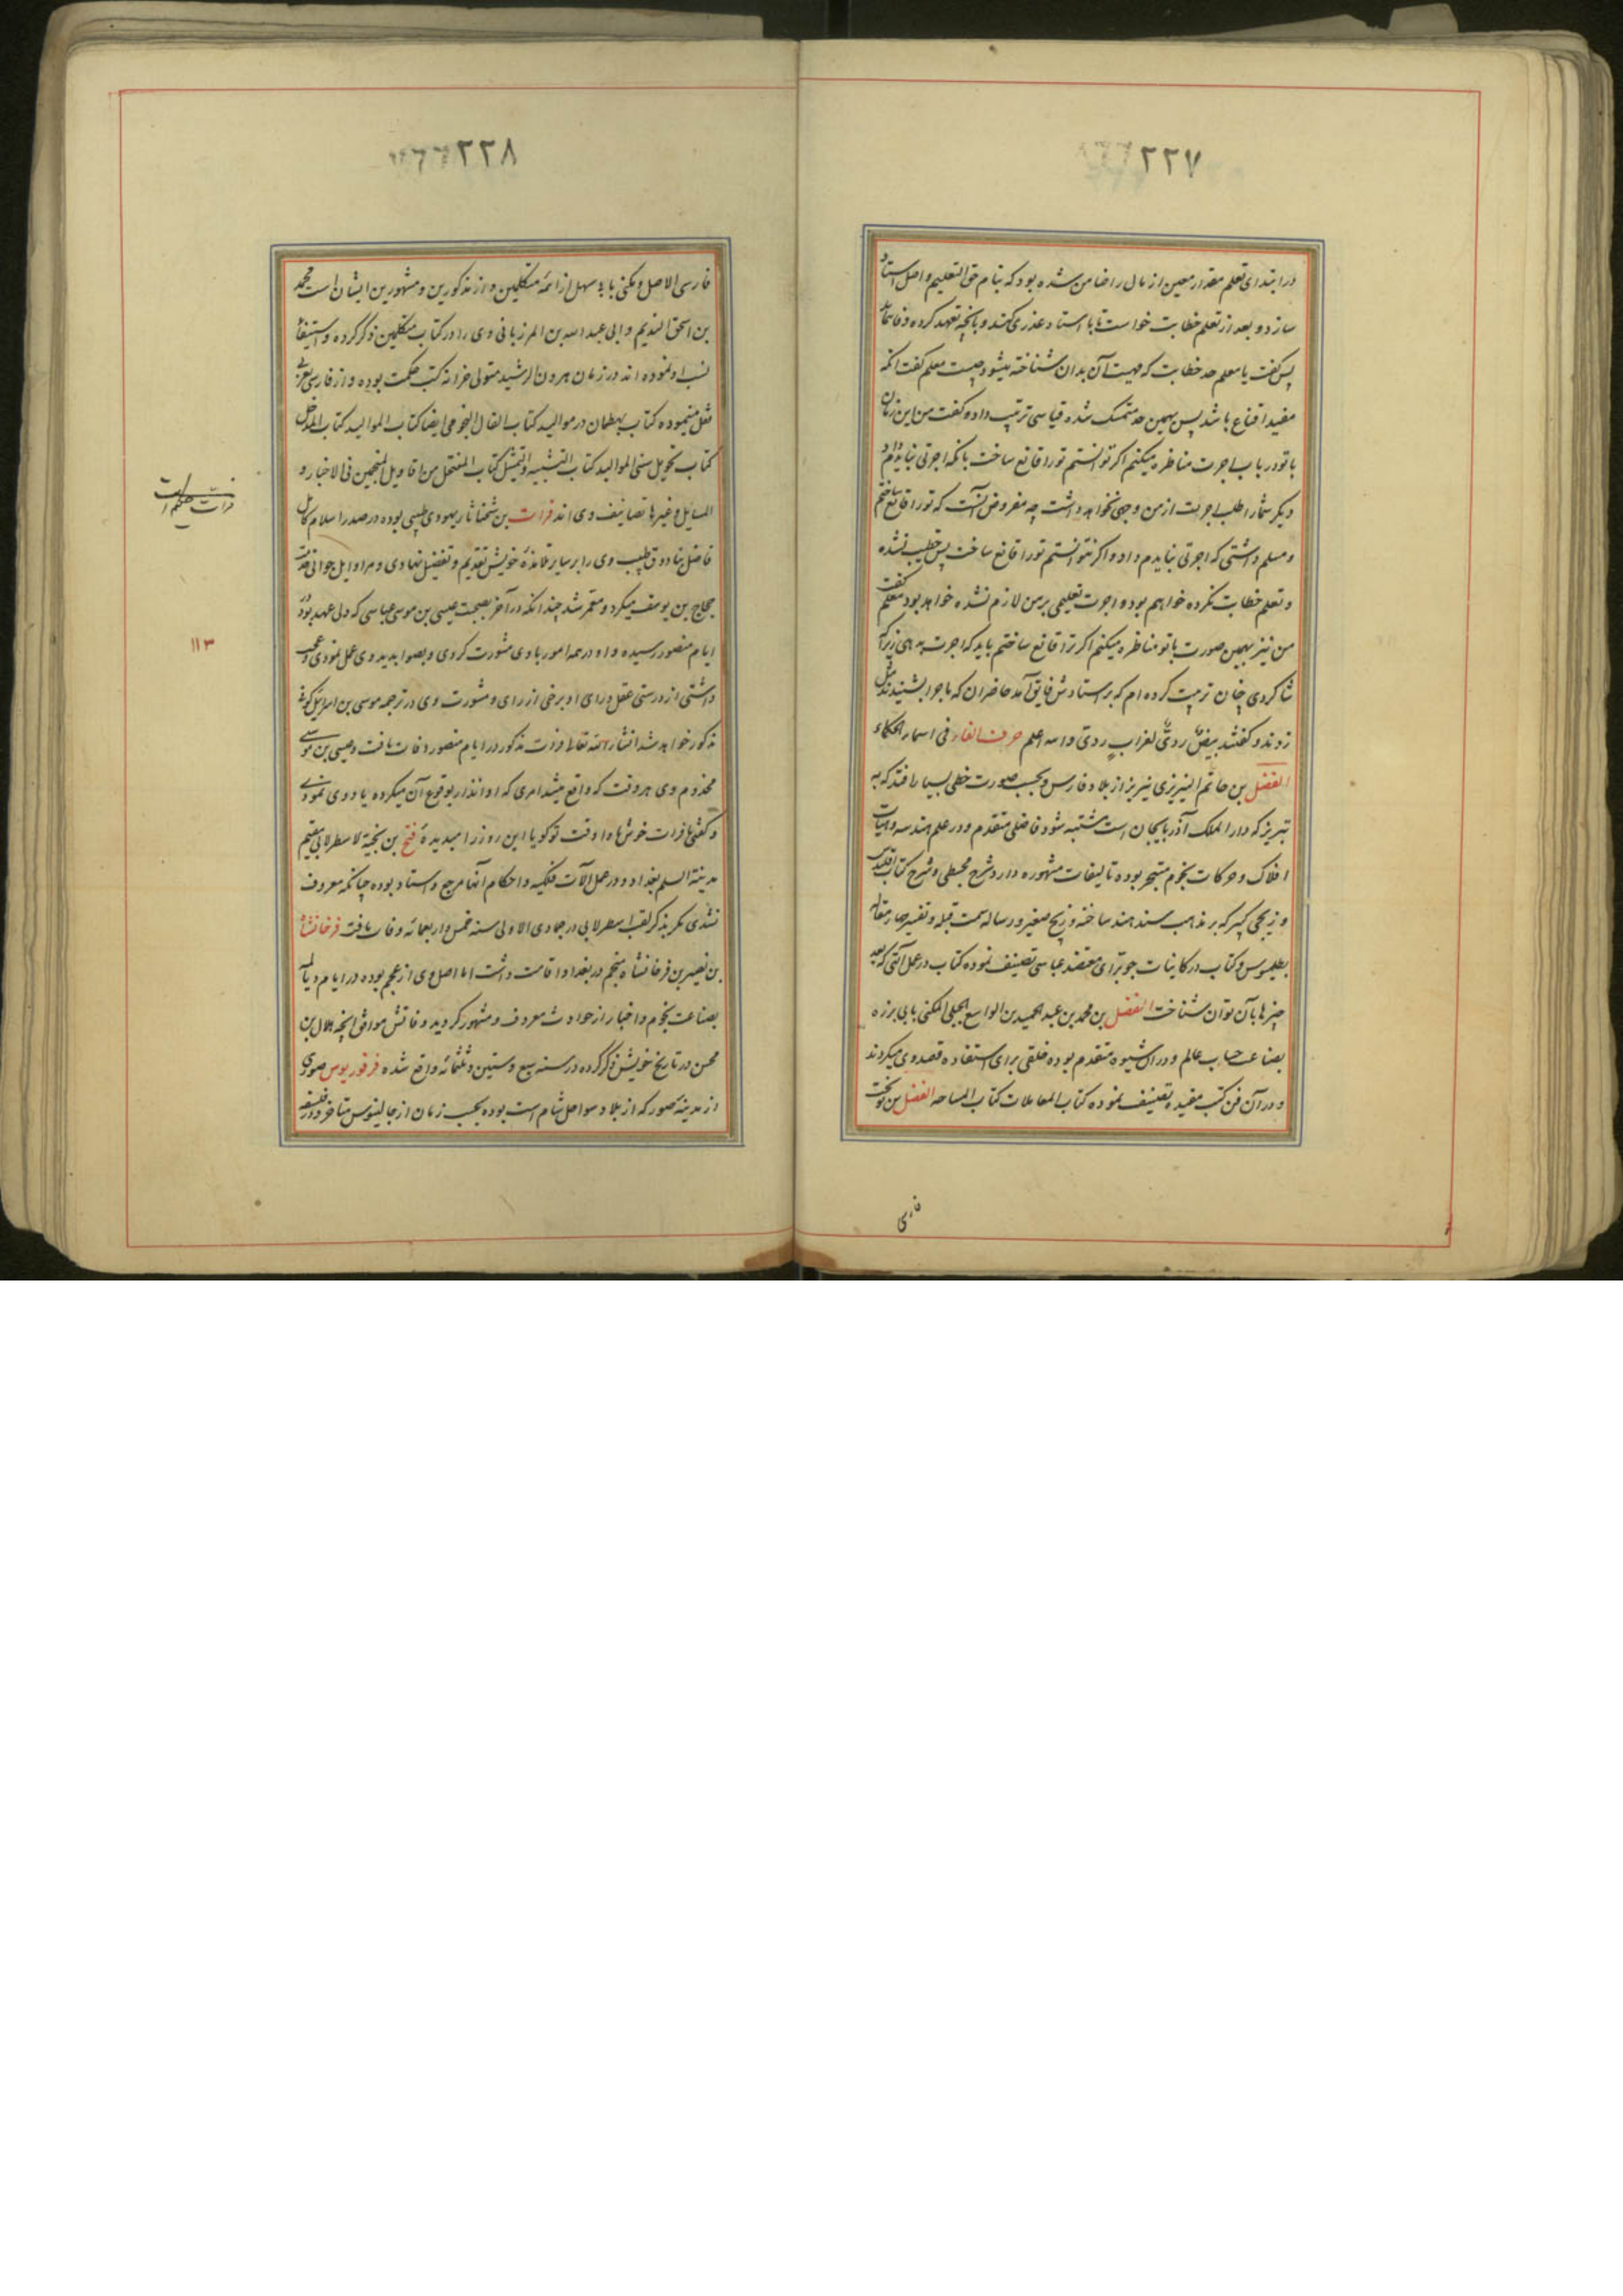 ۲۲۷
در ابتدای تعلم مقدار معین از مال را ضامن شده بود که بنام حق التعلیم واصل استاد
سازد و بعد از تعلم خطابت خواست تا با استاد عذری کند و بانچه تعهد کرده وفا ننماید
پس گفت یا معلم حد خطابت که مهیت آن بدان شناخته میشود چیست معلم گفت انکه
مفید اقناع باشد پس بهمین حد متمسک شده قیاسی ترتیب داد و گفت من این زمان
با تو در باب اجرت مناظره میکنم اکر توانستم تو را قانع ساخت بانکه اجرتی نبایدم داد
دیگر شما را طلب اجرت از من وجهی نخواهد داشت چه مفروض آنست که تو را قانع ساختم
و مسلم داشتی که اجرتی نبایدم داد و اکر نتوانستم تو را قانع ساخت پس خطیب نشده
و تعلم خطابت نکرده خواهم بود و اجرت تعلیمی بر من لازم نشده خواهد بود معلم گفت
من نیز بهمین صورت با تو مناظره میکنم اکر ترا قانع ساختم باید که اجرت بدهی زیرا که
شاکردی چنان تربیت کرده ام که بر استادش فایق آمد حاضران که ماجرا بشنیدند مثل
زدند و گفتند بیض ردی لغراب ردی واسه اعلم حرف الفاء فی اسماء الحکماء
الفضل بن حاتم النیریزی نیریز از بلاد فارس و بحسب صورت خطی بسیار افتد که به
تبریز که دار الملک آذربایجان است مشتبه شود فاضلی متقدم و در علم هندسه و هیات
افلاک و حرکات نجوم متبحر بوده تالیفات مشهوره دارد شرح مجسطی و شرح کتاب اقلیدس
و زیجی کبیر که بر مذهب سند هند ساخته و زیج صغیر و رساله سمت قبله و تفسیر چار مقاله
بطلیموس و کتاب در کاینات جو برای معتضد عباسی تصنیف نموده کتاب در عمل آلتی که بعد
چیزها بآن توان شناخت الفضل بن محمد بن عبد الحمید بن الواسع الجبلی المکنی بابی برزه
بصناعت حساب عالم و در ان شیوه متقدم بوده خلقی برای استفاده قصد وی میکردند
و در آن فن کتب مفیده تصنیف نموده کتاب المعاملات کتاب المساحه الفضل بن نوبخت
فارسی
۲۲۸
فارسی الاصل و مکنی بابی سهل از ائمه متکلمین و از مذکورین و مشهورین ایشان است محمد
بن اسحق الندیم و ابی عبد الله بن المرزبانی وی را در کتاب متکلمین ذکر کرده و استیفاء
نسب او نموده اند در زمان هرون الرشید متولی خزانه کتب حکمت بوده و از فارسی بعربی
نقل مینموده کتاب بهطمان در موالید کتاب الفال النجومی ایضا کتاب الموالید کتاب المدخل
کتاب تحویل سنی الموالید کتاب التشبیه و التمثیل کتاب المنتحل من اقاویل المنجمین فی الاخبار و
المسایل و غیرها تصانیف وی اند فرات بن شحناثا یهودی طبیبی بوده در صدر اسلام کامل
فاضل تیادوق طبیب وی را بر سایر تلامذه خویش تقدیم و تفضیل نهادی و در اوایل جوانی خدمت
حجاج بن یوسف میکرد و معمر شد چندانکه در آخر بصحبت عیسی بن موسی عباسی که ولی عهد بود در
ایام منصور رسیده و او در همه امور با وی مشورت کردی و بصوابدید وی عمل نمودی و عجب
داشتی از درستی عقل و رای او و برخی از رای و مشورت وی در ترجمه موسی بن اسراییل کوفی
مذکور خواهد شد انشاء الله تعالی فرات مذکور در ایام منصور وفات یافت و عیسی بن موسی
مخدوم وی هر وقت که واقع میشد امری که او انذار بوقوع آن میکرده یاد وی نمودی
و گفتی ها فرات خوش ها اوقت تو گویا این روز را میدیده فتح بن نجبة لاسطرلابی مقیم
مدینة السلم بغداد و در عمل آلات فلکیه و احکام آنها مرجع و استاد بوده چنانکه معروف
نشدی مکر بذکر لقب اسطرلابی در جمادی الاولی سنه خمس و اربعمائه وفات یافت فرخانشاه
بن نصیر بن فرخانشاه منجم در بغداد اقامت داشت اما اصل وی از عجم بوده در ایام دیالمه
بصناعت نجوم و اخبار از حوادث معروف و مشهور گردید وفاتش موافق انچه هلال بن
محسن در تاریخ خویش ذکر کرده در سنه سبع و ستین و ثلثمائه واقع شده فرفوریوس صوری
از مدینه صور که از بلاد سواحل شام است بوده بحسب زمان از جالینوس متاخر و در فلسفه
فرات حکیم است
۱۱۳